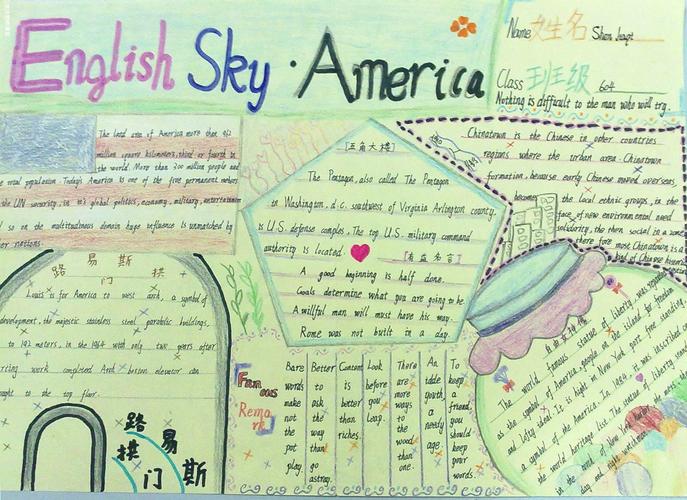 English Sky · America
Name 姓名
Class 班级 604
Nothing is difficult to the man who will try.
The land area of America more than 962
million square kilometers, third or fourth in
the world. More than 300 million people and
total population. Today's America is one of the five permanent members
the UN security, in its global politics, economy, military, entertainment
so on the multitudinous domain huge influence is unmatched by
other nations
[五角大楼]
The Pentagon, also called The Pentagon
in Washington, d.c. southwest of Virginia Arlington county,
is U.S. defense complex, The top U.S. military command
authority is located.
[有益名言]
A good beginning is half done.
Goals determine what you are going to be.
A willful man will must have his way.
Rome was not built in a day.
Chinatown is the Chinese in other countries
regions where the urban area. Chinatown
formation, because early Chinese moved overseas,
become the local ethnic groups, in the
face of new environmental need
solidarity, the then social in a
there fore most Chinatown is a
kind of Chinese
路易斯拱门
Louis is for America to west arch, a symbol of
development, the majestic stainless steel parabolic buildings,
to 192 meters, in the 1964 with only two years after
work completed And elevator can
to the top floor.
路易斯
拱门
Famous
Remark
Bare words make not the pot than play.
Better to ask the way than go astray.
Constant is better than riches.
Look before you leap.
There are more ways to the wood than one.
An idle youth, a needy age.
To keep a friend, you should keep your words.
The world famous statue of liberty, was
as the symbol of America, people on the island for freedom
and lofty ideas. It is hight in New York port free standing,
a symbol of the America. In 1984, it was inscribed
the world heritage list. The statue of liberty stands
in the world of New York
day and night